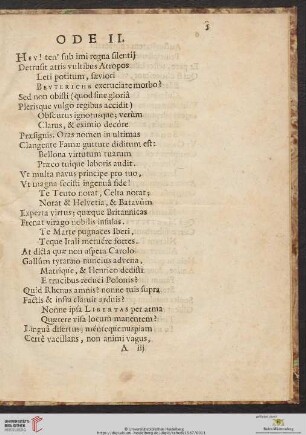 3
ODE II.
HEV! ten' sub imi regna silentij
Detrusit atris vultibus Atropos
Leti potitum, sæviori
BEVTERICHE excruciate morbo?
Sed non obisti (quod sine gloria
Plerisque vulgo regibus accidit)
Obscurus ignotusque; verùm
Clarus, & eximio decore
Præsignis. Oras nomen in ultimas
Clangente Famæ gutture diditum est:
Bellona virtutum tuarum
Præco tuique laboris audit.
Vt multa navus principe pro tuo,
Vt magna gessisti ingenuâ fide!
Te Teuto norat, Celta norat;
Norat & Helvetia, & Batavûm
Experta virtus; quæque Britannicas
Frenat virago nobilis insulas.
Te Marte pugnaces Iberi,
Teque Itali metuêre fortes.
At dicta quæ non aspera Carolo
Gallûm tyranno nuncius advena,
Matrique, & Henrico dedisti
E trucibus reduci Polonis?
Quid Rhenus amnis? nonne tuis supra
Factis & infra claruit arduis?
Nonne ipsa LIBERTAS per arma
Quærere visa locum manentem?
Linguâ disertus; mentéque nuspiam
Certè vacillans, non animi vagus,
A iij